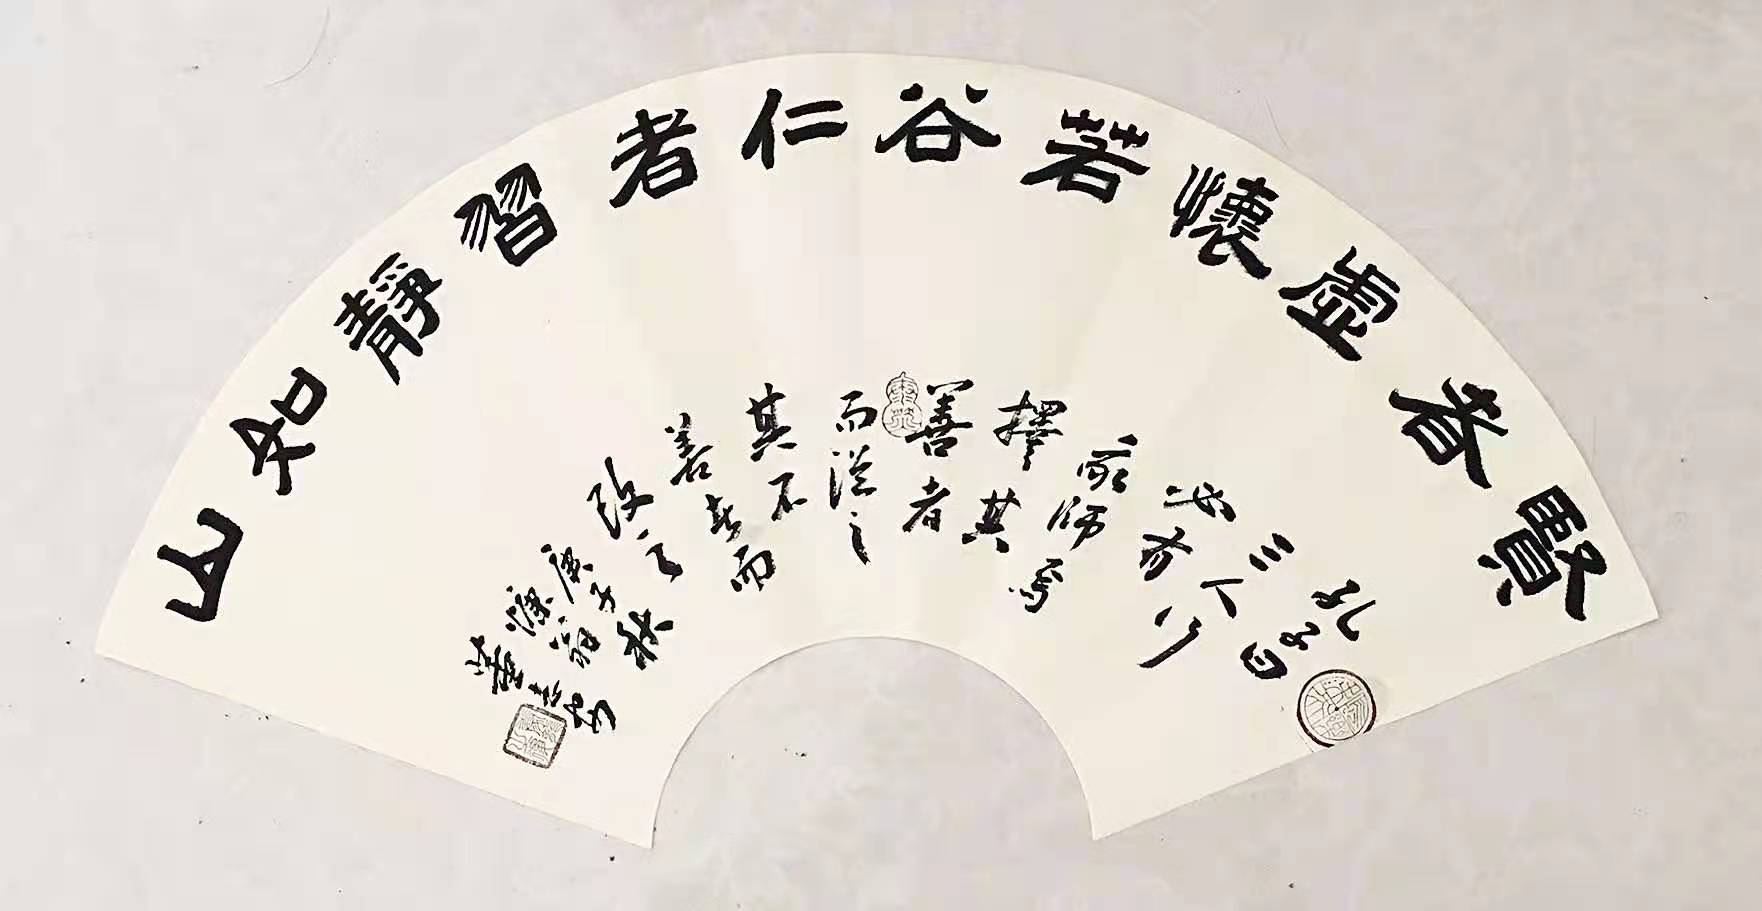 賢者虛懷若谷仁者習靜如山
孔子曰
三人行
必有
我師焉
擇其
善者
而從之
其不
善者而
改之
庚子秋
濂翁
董